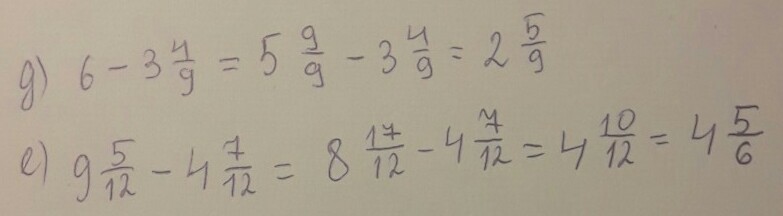 д) 6 - 3 4/9 = 5 9/9 - 3 4/9 = 2 5/9
е) 9 5/12 - 4 7/12 = 8 17/12 - 4 7/12 = 4 10/12 = 4 5/6